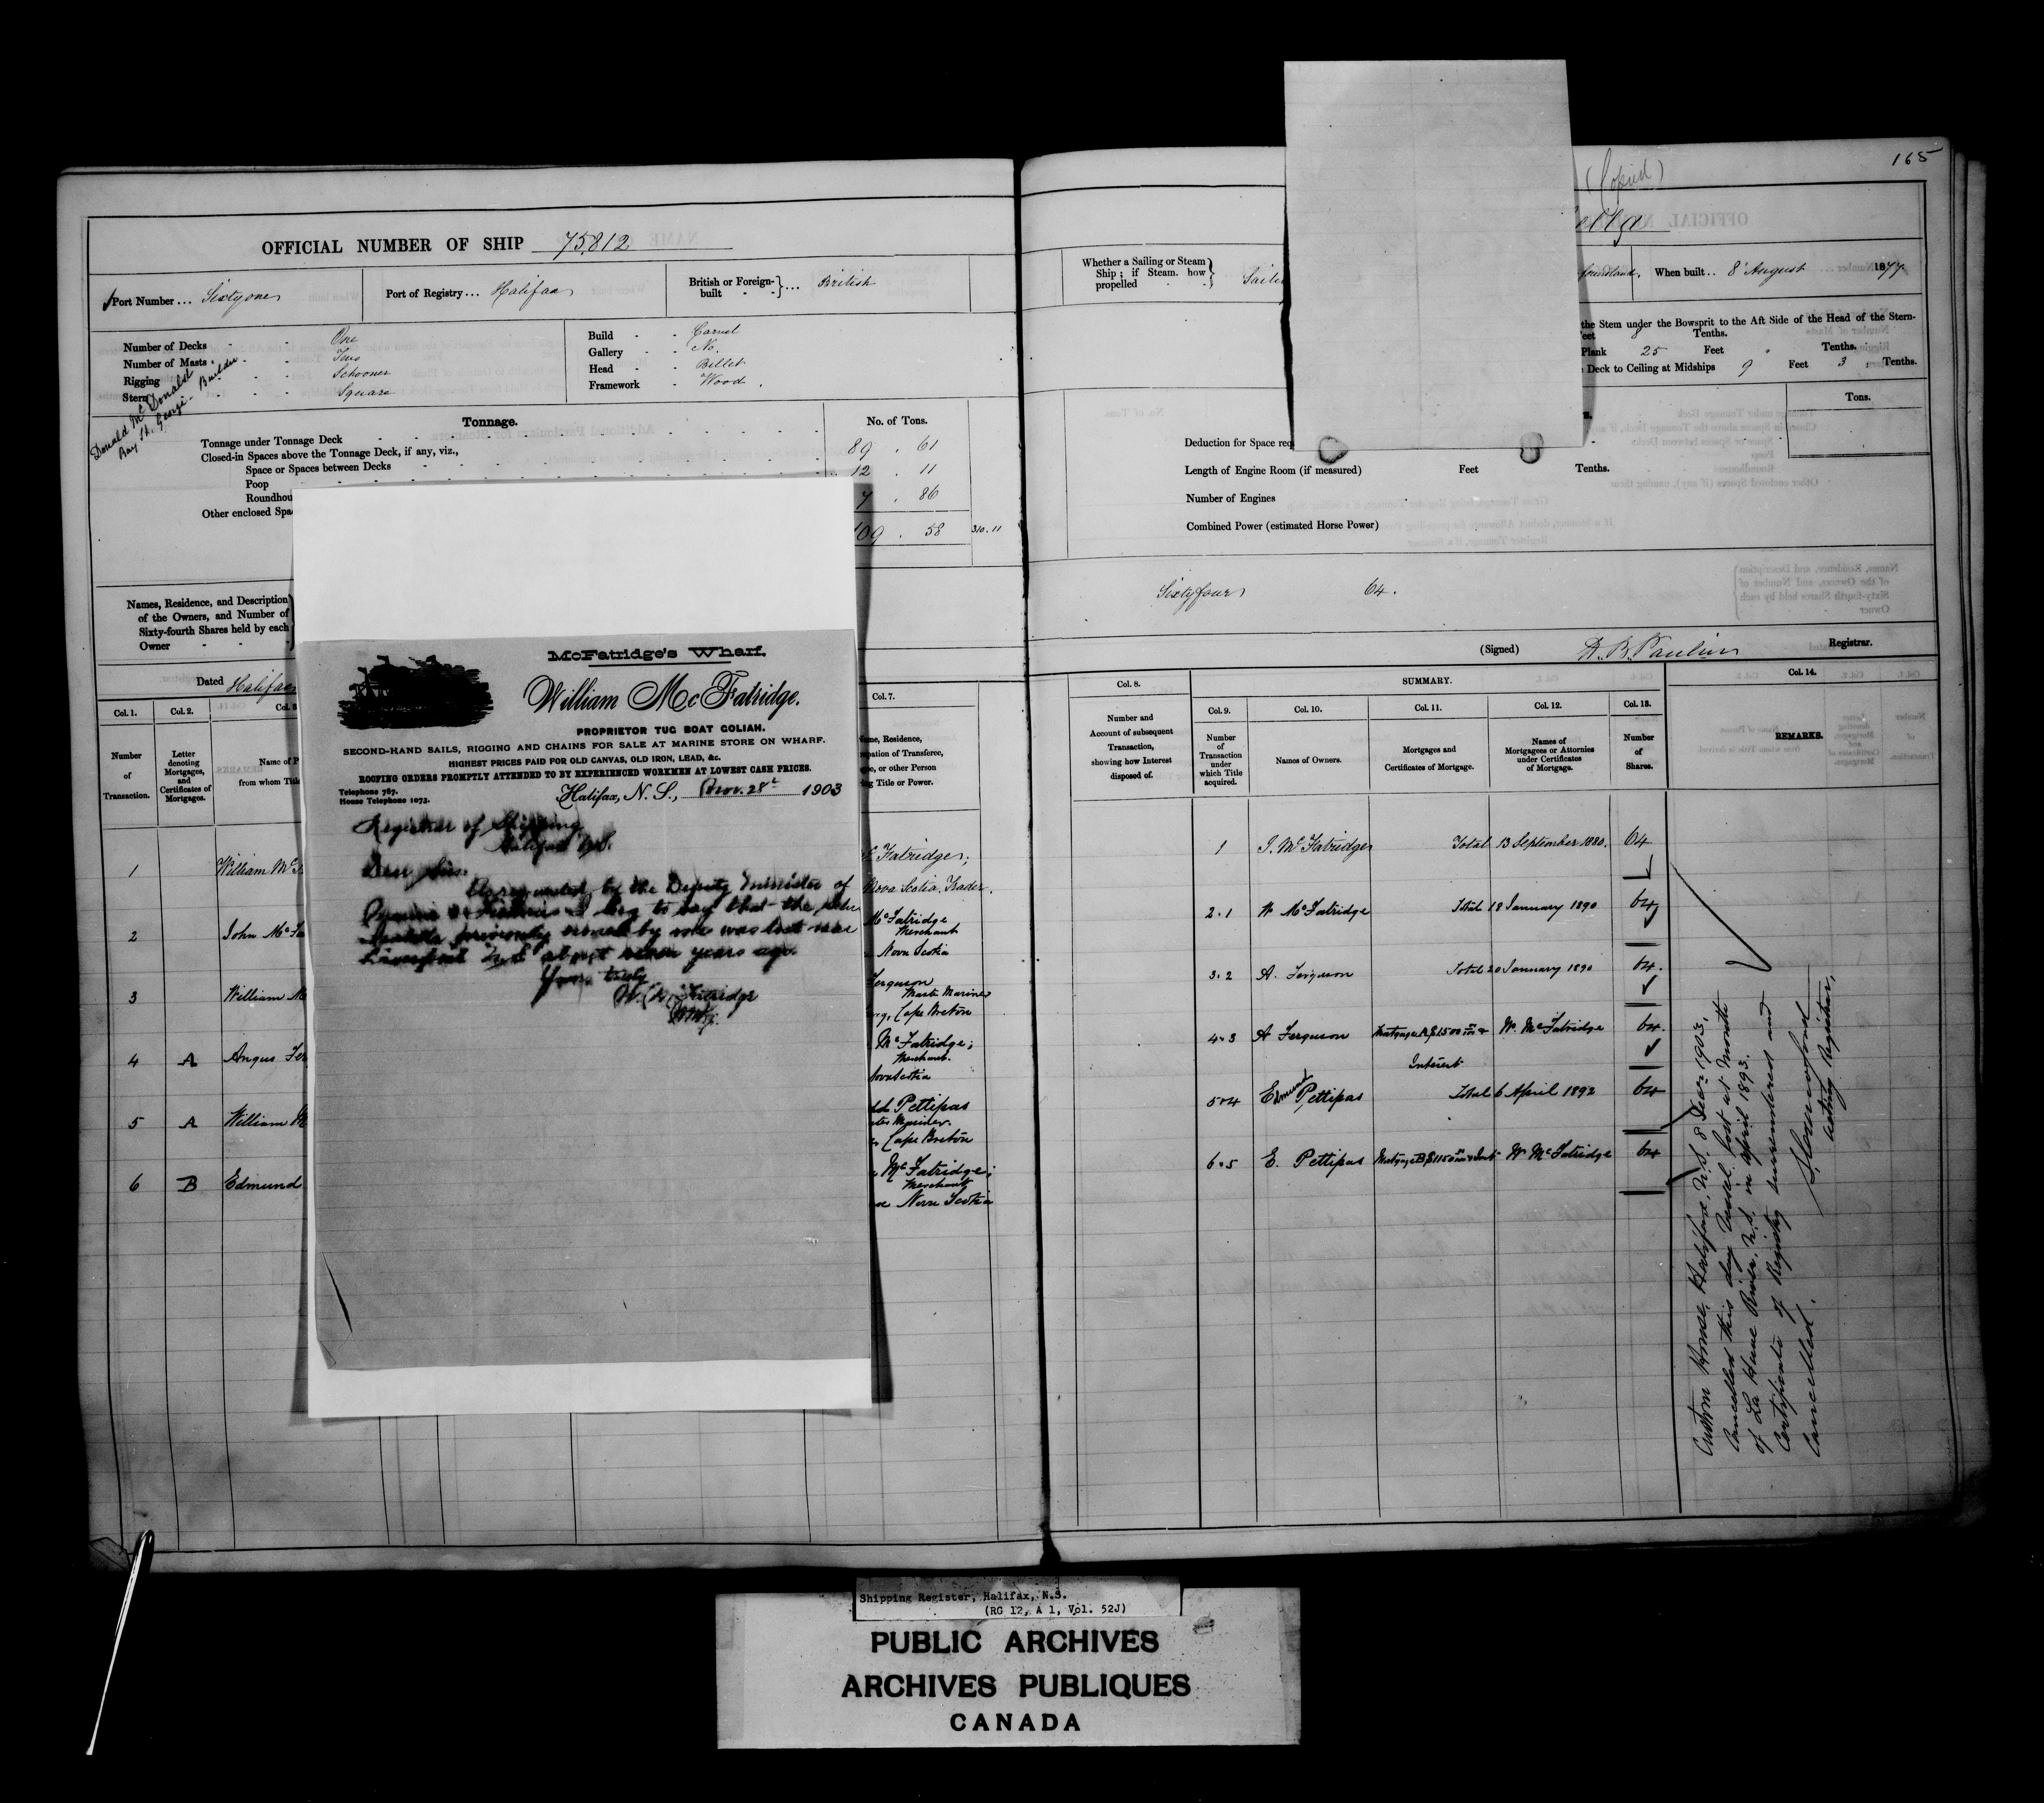 165
(Copied)
OFFICIAL NUMBER OF SHIP 75,812
Port Number ... Sixty one
Port of Registry ... Halifax
British or Foreign-built } ... British
Whether a Sailing or Steam Ship ; if Steam, how propelled }
When built .. 8 August 1877
Number of Decks - - One
Number of Masts - Two
Rigging - - Schooner
Stern - - Square
Donald McDonald
Bay St. George - Builder
Build - - Carvel
Gallery - - No.
Head - - Billet
Framework - Wood.
the Stem under the Bowsprit to the Aft Side of the Head of the Stern-
8 Tenths.
Plank 25 Feet " Tenths.
Deck to Ceiling at Midships 9 Feet 3 Tenths.
Tonnage.
No. of Tons.
Tons.
Tonnage under Tonnage Deck 89 . 61
Closed-in Spaces above the Tonnage Deck, if any, viz.,
Space or Spaces between Decks 12 . 11
Poop
Other enclosed
7 . 86
109 . 58 310.11
Deduction for Space
Length of Engine Room (if measured) Feet Tenths.
Number of Engines
Combined Power (estimated Horse Power)
Names, Residence, and Description of the Owners, and Number of Sixty-fourth Shares held by each Owner
Sixty four 64.
(Signed) Registrar.
Dated Halifax
Col. 1. Col. 2. Col. 7.
Number of Transaction.
Letter denoting Mortgages, and Certificates of Mortgages.
Name of
from whom
Residence,
of Transferee,
or other Person
Title or Power.
Col. 8. SUMMARY. Col. 14.
Col. 9. Col. 10. Col. 11. Col. 12. Col. 13.
Number and Account of subsequent Transaction, showing how Interest disposed of.
Number of Transaction under which Title acquired.
Names of Owners.
Mortgages and Certificates of Mortgage.
Names of Mortgagees or Attornies under Certificates of Mortgage.
Number of Shares.
REMARKS.
1 William
2 John
3 William
4 A Angus
5 A William
6 B Edmund
Fatridge;
Nova Scotia, Trader.
McFatridge
Merchant
Nova Scotia
Ferguson
Master Mariner
Cape Breton
McFatridge;
Merchant.
Nova Scotia
Pettipas
Cape Breton
McFatridge;
Merchant
Nova Scotia
1 J. McFatridge Total 13 September 1880. 64
2.1 W. McFatridge Total 18 January 1890 64
3.2 A. Ferguson Total 20 January 1890 64.
4.3 A Ferguson Mortgage A $1500 & Interest W. McFatridge 64.
5.4 Edmund Pettipas Total 6 April 1892 64
6.5 E. Pettipas Mortgage B $1150 & Int W McFatridge 64
Custom House, Halifax, N.S. 8 Decr 1903,
Cancelled this day Vessel lost at Mouth
of La Have River, N.S. in April 1893.
Certificate of Registry surrendered and
Cancelled.
Acting Registrar,
McFatridge's Wharf.
William McFatridge.
PROPRIETOR TUG BOAT GOLIAH.
SECOND-HAND SAILS, RIGGING AND CHAINS FOR SALE AT MARINE STORE ON WHARF.
HIGHEST PRICES PAID FOR OLD CANVAS, OLD IRON, LEAD, &c.
ROOFING ORDERS PROMPTLY ATTENDED TO BY EXPERIENCED WORKMEN AT LOWEST CASH PRICES.
Telephone 787.
House Telephone 1073.
Halifax, N. S., Nov. 28th 1903
Registrar of Shipping
Halifax N.S.
Dear Sir:
As requested by the Deputy Minister of
Marine & Fisheries I beg to say that the
previously owned by me was lost near
Liverpool N.S. about seven years ago.
Yours truly
W. McFatridge
Shipping Register, Halifax, N.S.
(RG 12, A 1, Vol. 52J)
PUBLIC ARCHIVES
ARCHIVES PUBLIQUES
CANADA